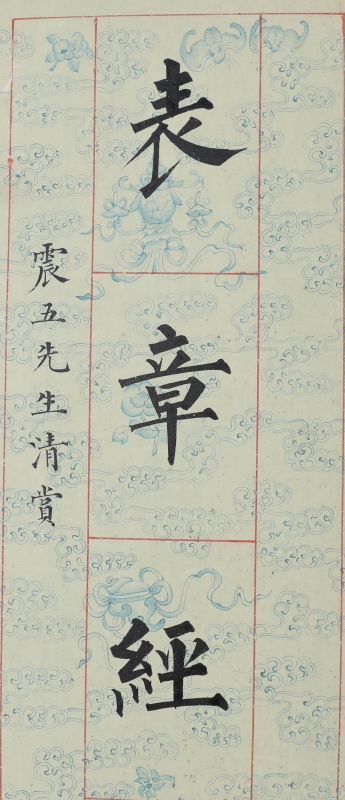 表章經
震五先生清賞